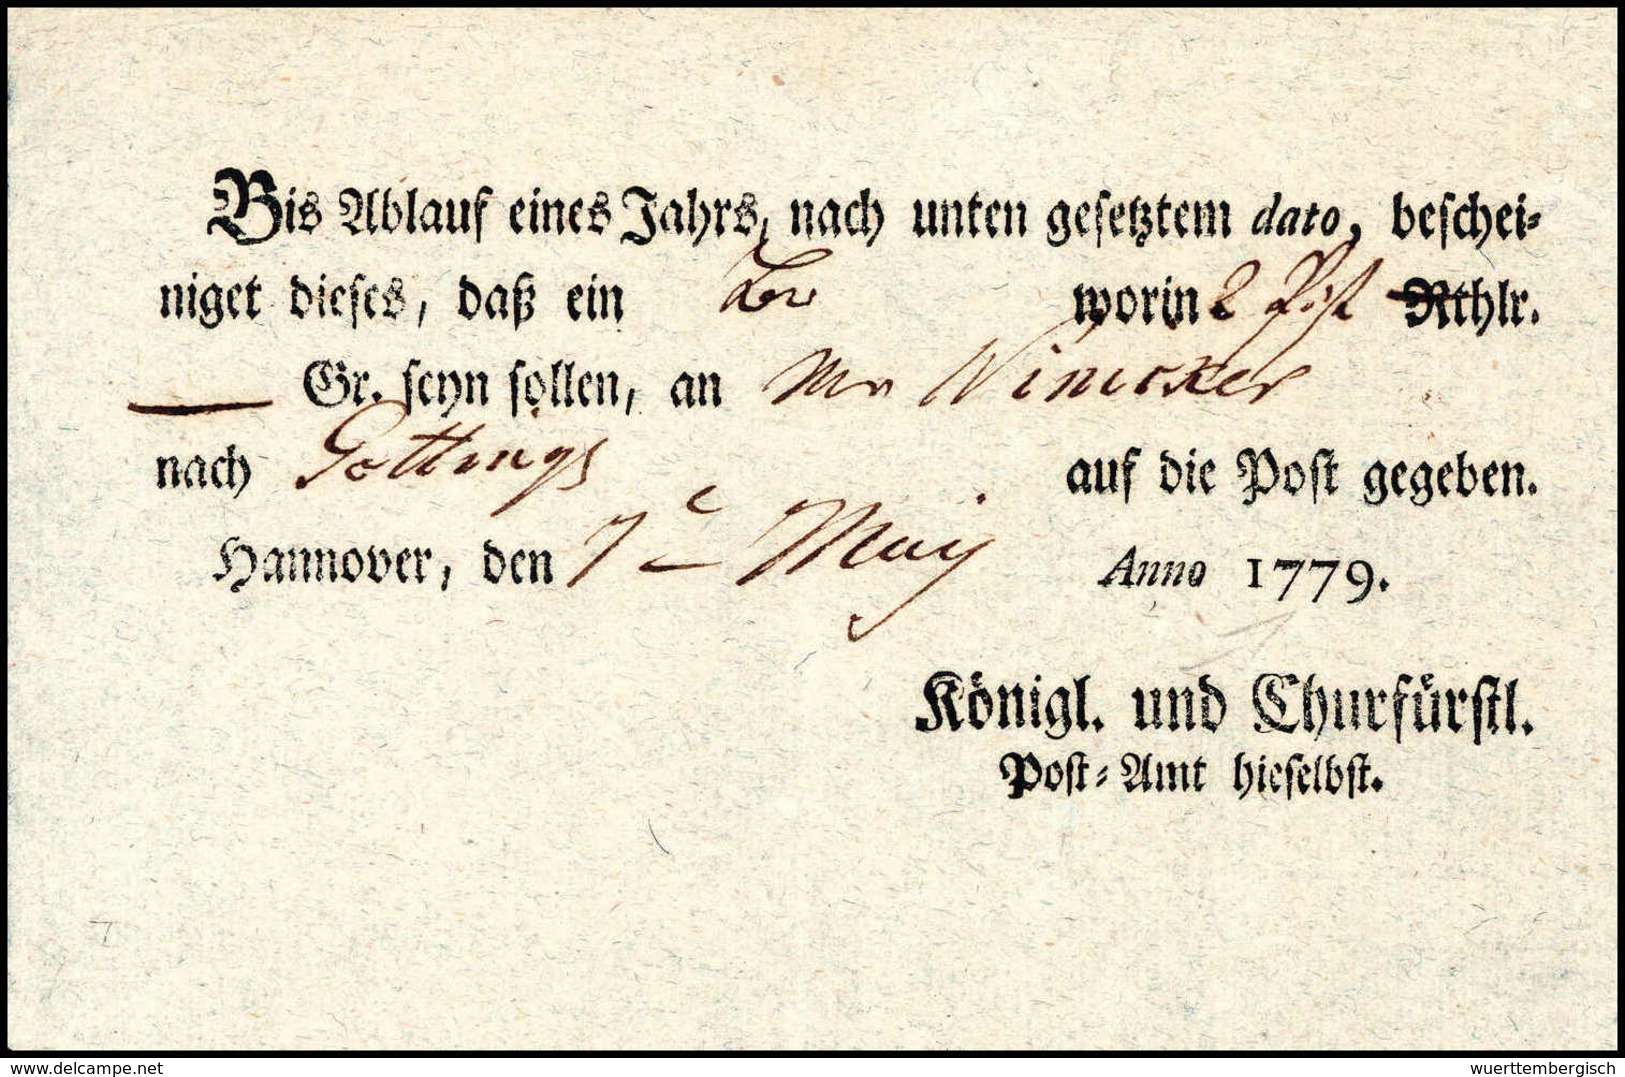 Bis Ablauf eines Jahrs, nach unten gesetztem dato, beschei-
niget dieses, daß ein worin 2 Pist Rthlr.
Gr. seyn sollen, an Mr
nach Gottings auf die Post gegeben.
Hannover, den 7 May Anno 1779.
Königl. und Churfürstl.
Post-Amt hieselbst.
www.delcampe.net
wuerttembergisch